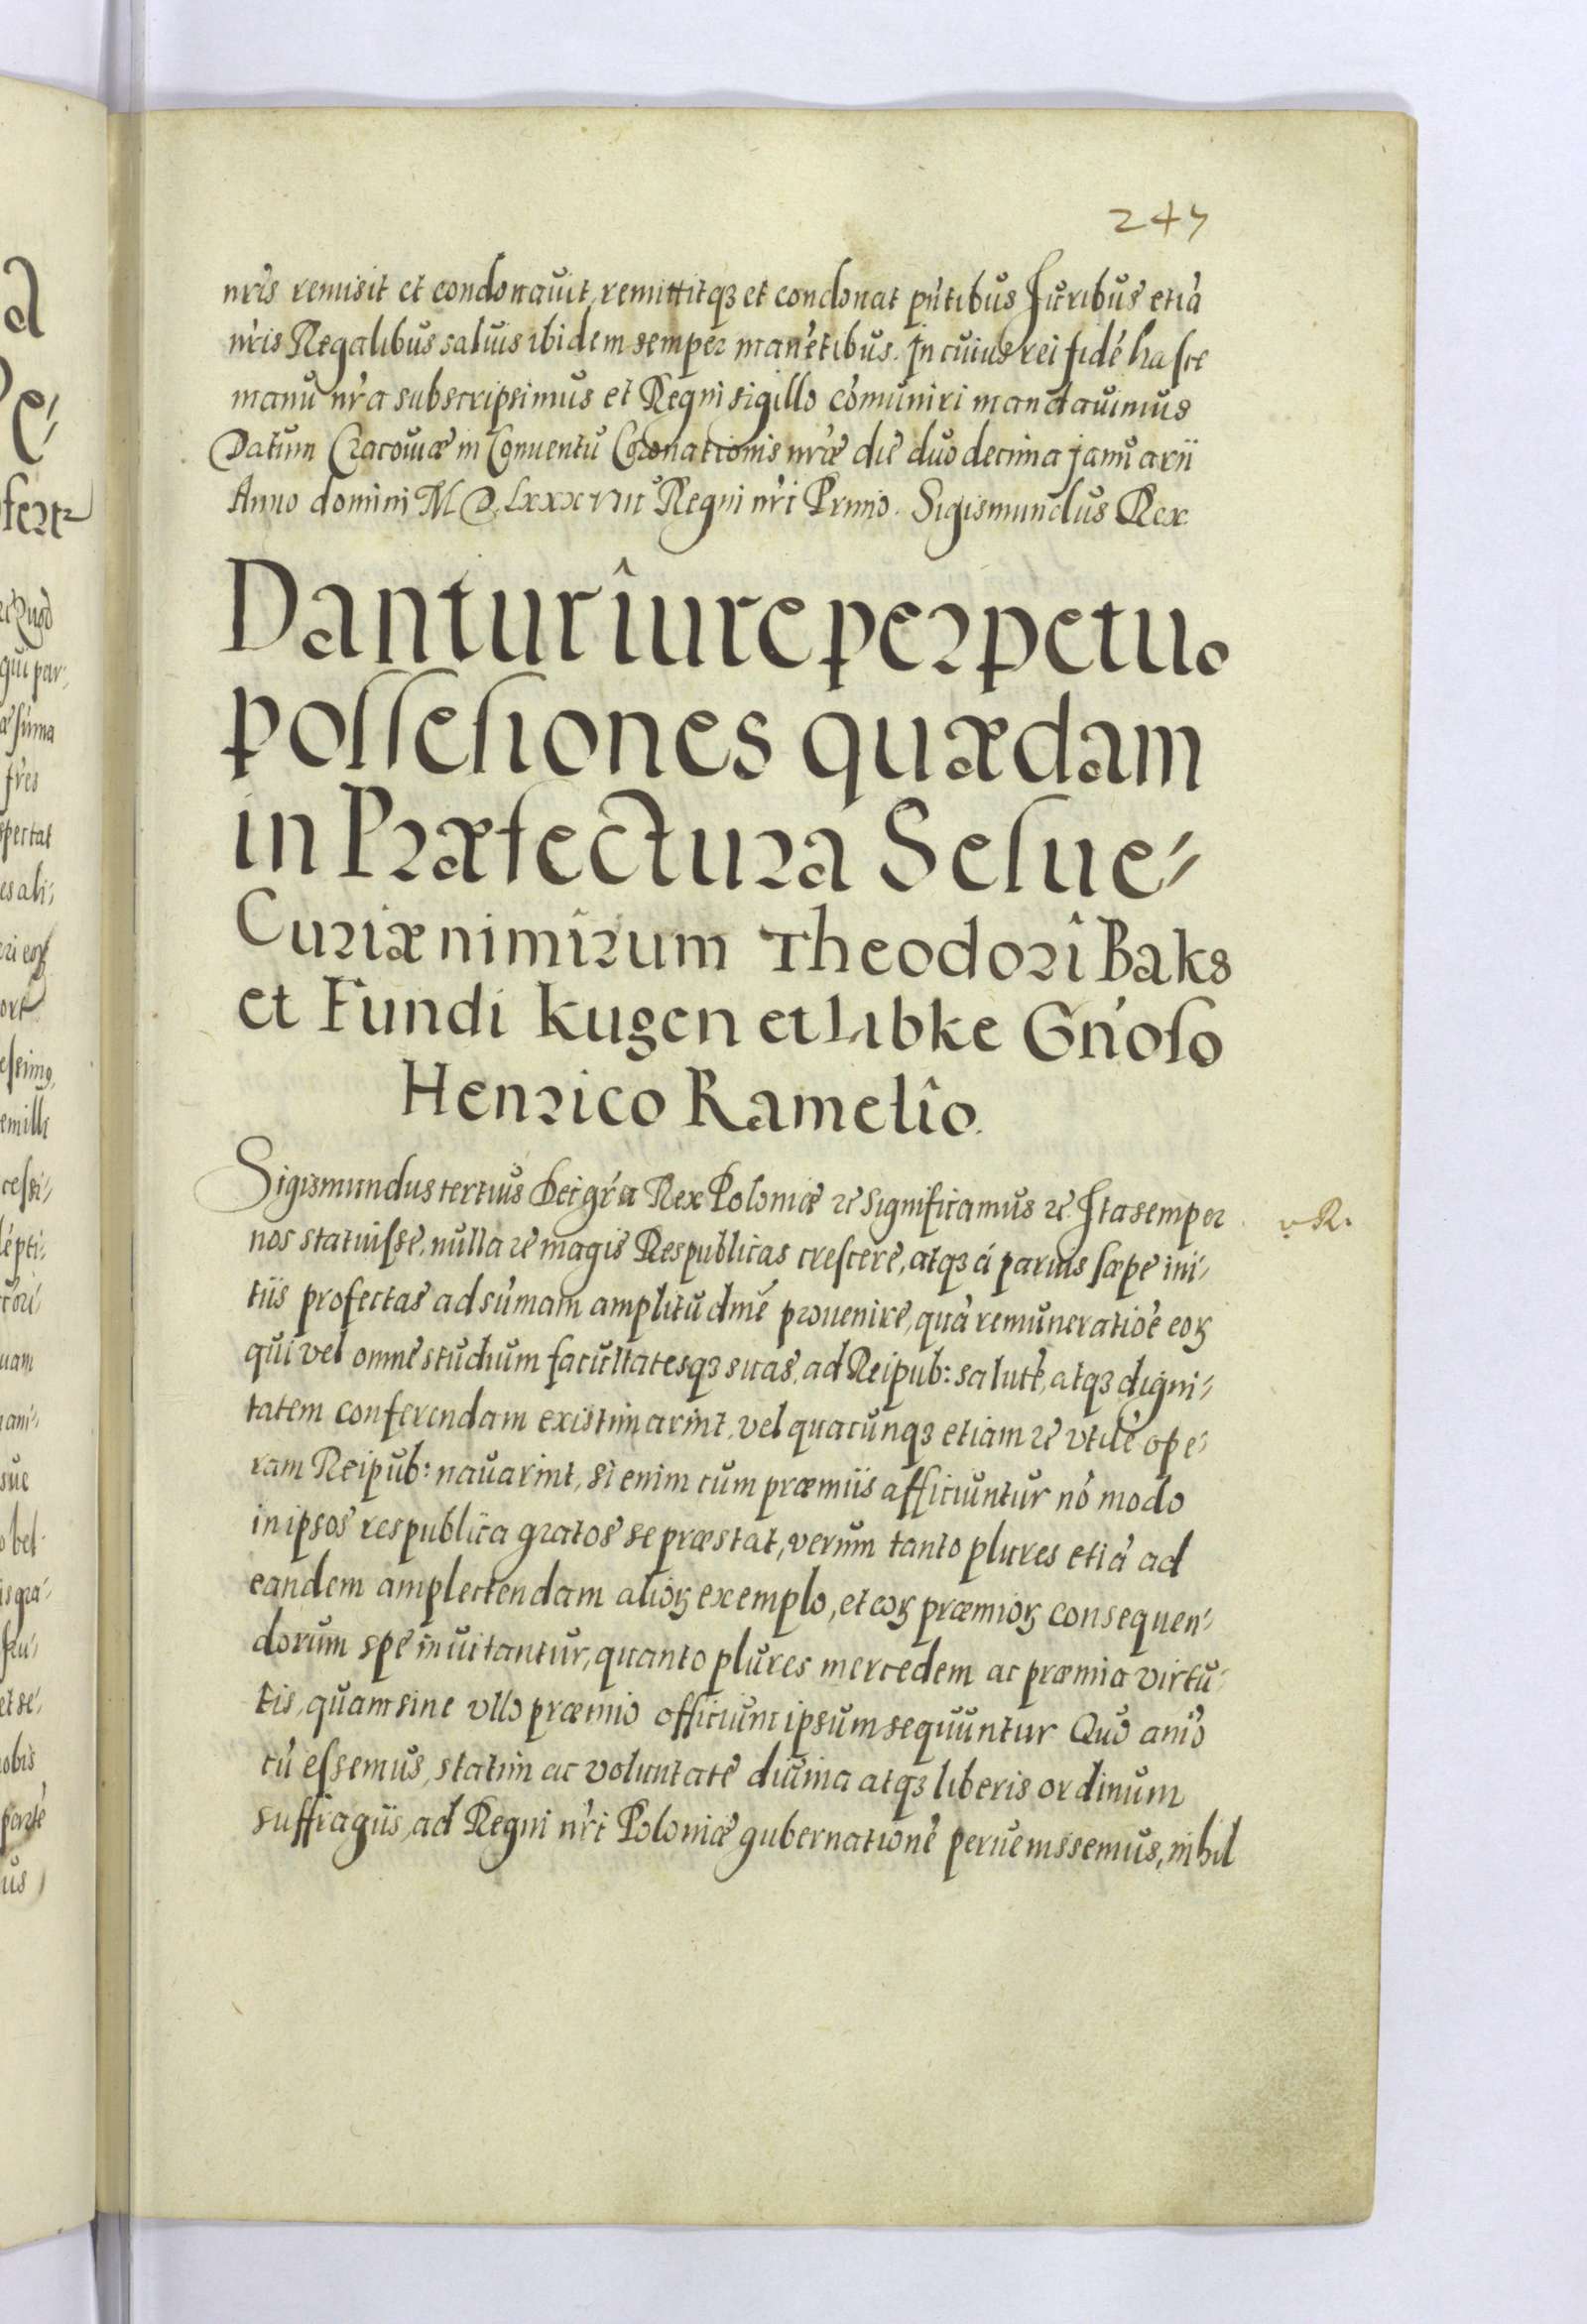 245
nr̃is remisit et condonauit, remittitqꝫ et condonat pñtibus Juribus etiã
nr̃is Regalibus saluis ibidem semper manẽtibus. In cuius rei fidẽ hasce
manu nr̃a subscripsimus et Regni sigillo cõmuniri mandauimus
Datum Cracouiæ in Conuentu Coronationis nr̃æ die duodecima januarii
Anno domini M.D.Lxxxviii Regni nr̃i Primo. Sigismundus Rex
Dantur iure perpetuo
possesiones quædam
in Præfectura Selue-
Curiæ nimirum Theodori Baks
et Fundi Kugen et Libke Gñoso
Henrico Ramelio.
Sigismundus tertius Dei gr̃a Rex Poloniæ ⁊c significamus ⁊c. Ita semper
v. R.
nos statuisse, nulla re magis Respublicas crescere, atqꝫ á paruis sæpe ini-
tiis profectas ad sũmam amplitudinẽ prouenire, quã remuneratiõe eoꝝ
qui vel omne studium facultatesqꝫ suas, ad Reipub: salutẽ, atqꝫ digni-
tatem conferendam existimarint, vel quacunqꝫ etiam re vtilẽ ope-
ram Reipub: nauarint, si enim cum præmiis afficiuntur nõ modo
in ipsos respublica gratos se præstat, verum tanto plures etiã ad
eandem amplectendam alioꝝ exemplo, et eoꝝ præmioꝝ consequen-
dorum spe inuitantur, quanto plures mercedem ac præmia virtu-
tis, quam sine vllo præmio officium ipsum sequuntur Quo anĩo
cũ essemus, statim ac voluntate diuina atqꝫ liberis ordinum
suffragiis, ad Regni nr̃i Poloniæ gubernationẽ peruenissemus, nihil